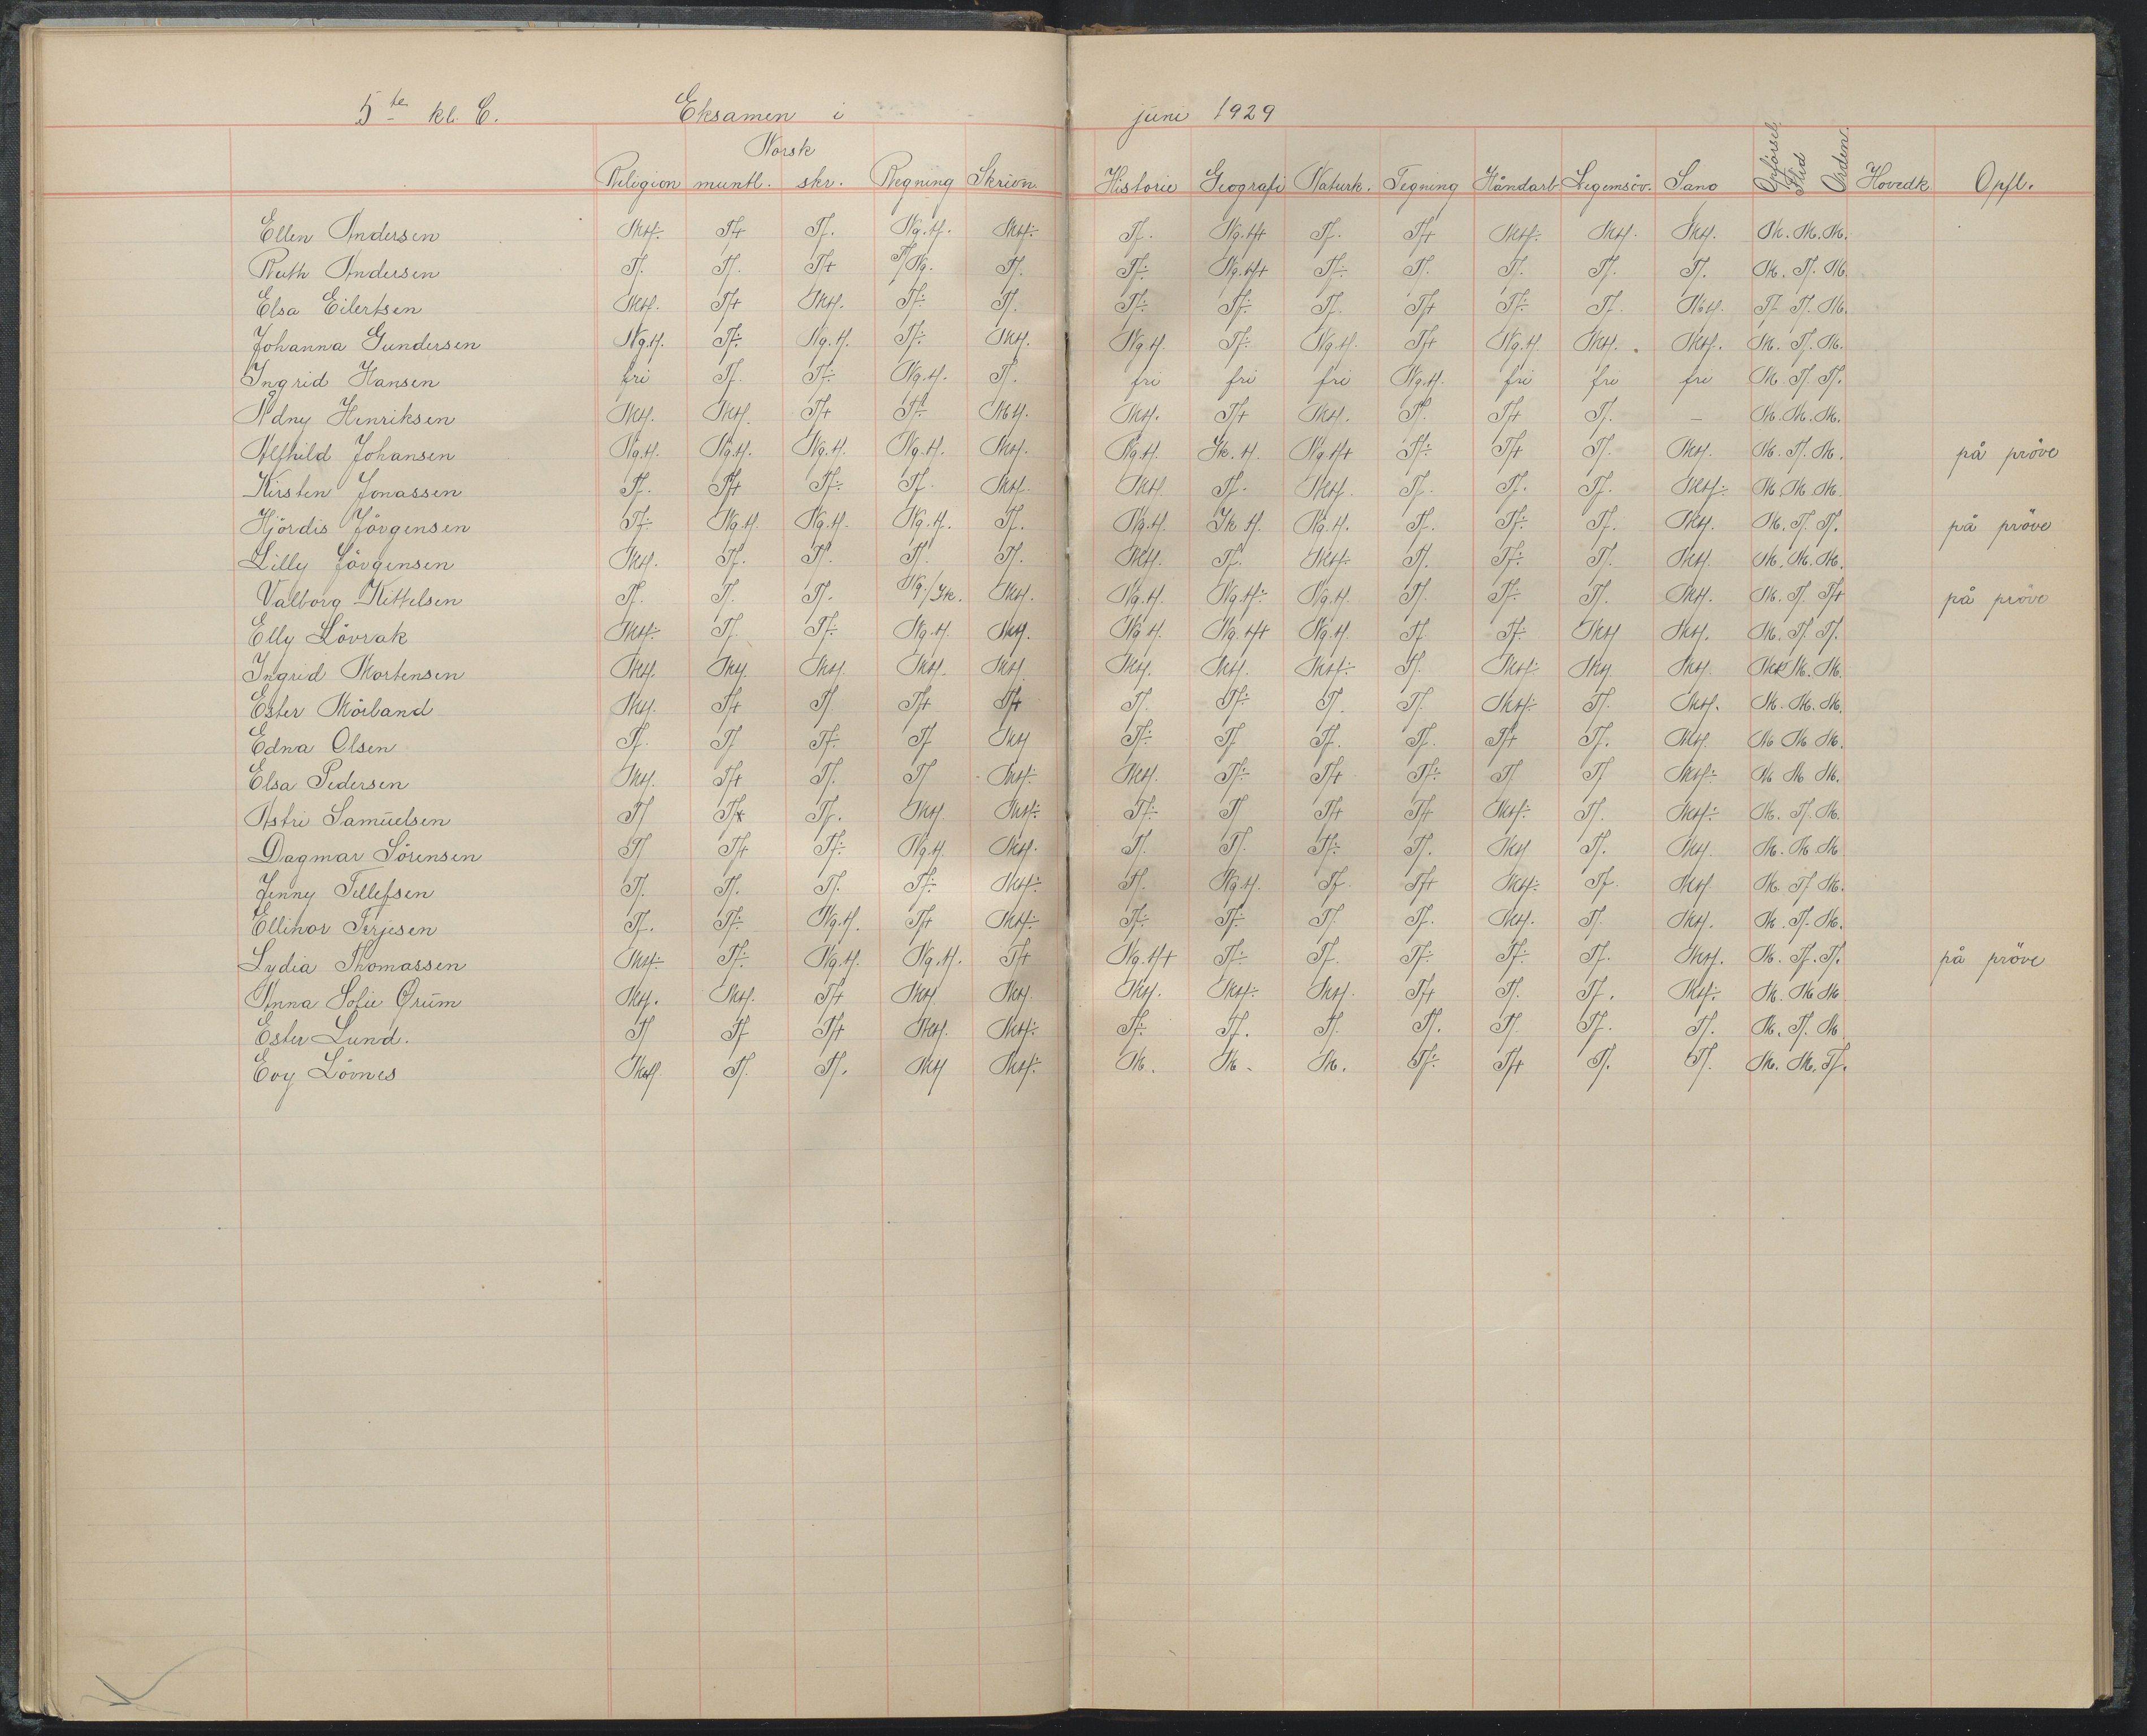 5te kl. C. Eksamen i juni 1929
Norsk
Religion muntl. skr. Regning Skrivn. Historie Geografi Naturk. Tegning Håndarb. Legemsöv. Sang Opförsel Flid Orden. Hovedk. Opfl.
Ellen Andersen Mtf÷ Tf+ Tf. Ng.tf. Mtf÷ Tf. Ng.tf+ Tf. Tf+ Mtf÷ Mtf. Mtf. M. M. M.
Ruth Andersen Tf. Tf. Tf+ Tf/Ng. Tf. Tf÷ Ng.tf+ Tf÷ Tf. Tf. Tf. Tf. M. Tf. M.
Elsa Eilertsen Mtf. Tf+ Mtf. Tf÷ Tf. Tf÷ Tf÷ Tf. Tf+ Tf÷ Tf. Mtf. Tf. Tf. M.
Johanna Gundersen Ng.tf. Tf÷ Ng.tf. Tf÷ Mtf. Ng.tf. Tf÷ Ng.tf. Tf+ Ng.tf. Mtf. Mtf. M. Tf. M.
Ingrid Hansen fri Tf. Tf÷ Ng.tf. Tf. fri fri fri Ng.tf. fri fri fri M. Tf. Tf.
Ådny Henriksen Mtf. Mtf. Tf+ Tf÷ Mtf. Mtf. Tf+ Mtf. Tf. Tf+ Tf. – M. M. M.
Alfhild Johansen Ng.tf. Ng.tf. Ng.tf. Ng.tf. Mtf. Ng.tf. Ik.tf. Ng.tf+ Tf÷ Tf+ Tf. Mtf. M. Tf. M. på pröve
Kirsten Jonassen Tf. Tf+ Tf÷ Tf. Mtf. Mtf. Tf. Mtf. Tf. Tf. Tf. Mtf÷ M. M. M.
Hjördis Jörgensen Tf÷ Ng.tf. Ng.tf. Ng.tf. Tf. Ng.tf. Ik tf. Ng.tf. Tf. Tf÷ Tf. Mtf. M. Tf. Tf. på pröve
Lilly Jörgensen Mtf. Tf. Tf. Tf. Tf. Mtf. Tf. Mtf÷ Tf. Tf÷ Tf. Mtf. M. M. M.
Valborg Kittelsen Tf. Tf. Tf. Ng./Ik. Mtf. Ng.tf. Ng.tf÷ Ng.tf. Tf. Tf÷ Tf. Mtf. M. Tf. Tf+ på pröve
Elly Lövrak Mtf÷ Tf. Tf÷ Ng.tf. Mtf. Ng.tf. Ng.tf+ Ng.tf. Tf. Tf÷ Mtf Mtf. M. Tf. Tf.
Ingrid Mortensen Mtf. Mtf. Mtf. Mtf. Mtf. Mtf. Mtf. Mtf÷ Tf. Mtf÷ Mtf Mtf. M. M. M.
Ester Mörland Mtf. Tf+ Tf Tf+ Tf+ Tf. Tf÷ Tf. Tf. Mtf÷ Tf. Mtf. M. M. M.
Edna Olsen Tf. Tf Tf÷ Tf Mtf Tf÷ Tf Tf. Tf. Tf+ Tf. Mtf. M M M.
Elsa Pedersen Mtf. Tf+ Tf. Tf Mtf÷ Mtf. Tf÷ Tf+ Tf÷ Tf Tf Mtf÷ M M M.
Astri Samuelsen Tf Tf+ Tf. Mtf. Mtf÷ Tf÷ Tf Tf+ Tf+ Mtf÷ Tf. Mtf÷ M. Tf. M.
Dagmar Sörensen Tf Tf+ Tf÷ Ng.tf. Mtf. Tf. Tf. Tf÷ Tf. Mtf Tf. Mtf. M. M. M
Jenny Tellefsen Tf. Tf. Tf. Tf÷ Mtf÷ Tf. Ng.tf. Tf. Tf+ Mtf÷ Tf. Mtf. M. Tf M.
Ellinor Terjesen Tf. Tf÷ Ng.tf. Tf+ Mtf÷ Tf÷ Tf÷ Tf Tf. Mtf. Tf. Mtf. M. Tf. M.
Lydia Thomassen Mtf÷ Tf÷ Ng.tf. Ng.tf. Tf+ Ng.tf+ Tf÷ Tf. Tf÷ Tf÷ Tf. Mtf. M. Tf. Tf. på pröve
Anna Sofie Ørum Mtf. Mtf. Tf+ Mtf. Mtf. Mtf. Mtf÷ Mtf. Tf+ Tf. Tf. Mtf÷ M. M M
Ester Lund. Tf Tf Tf+ Mtf. Mtf÷ Tf÷ Tf. Tf. Tf. Tf. Tf. Tf. M. Tf. M.
Evy Lövnes Mtf. Tf. Tf. Mtf Mtf÷ M. M. M. Tf÷ Tf+ Tf. Tf. M. M. Tf.